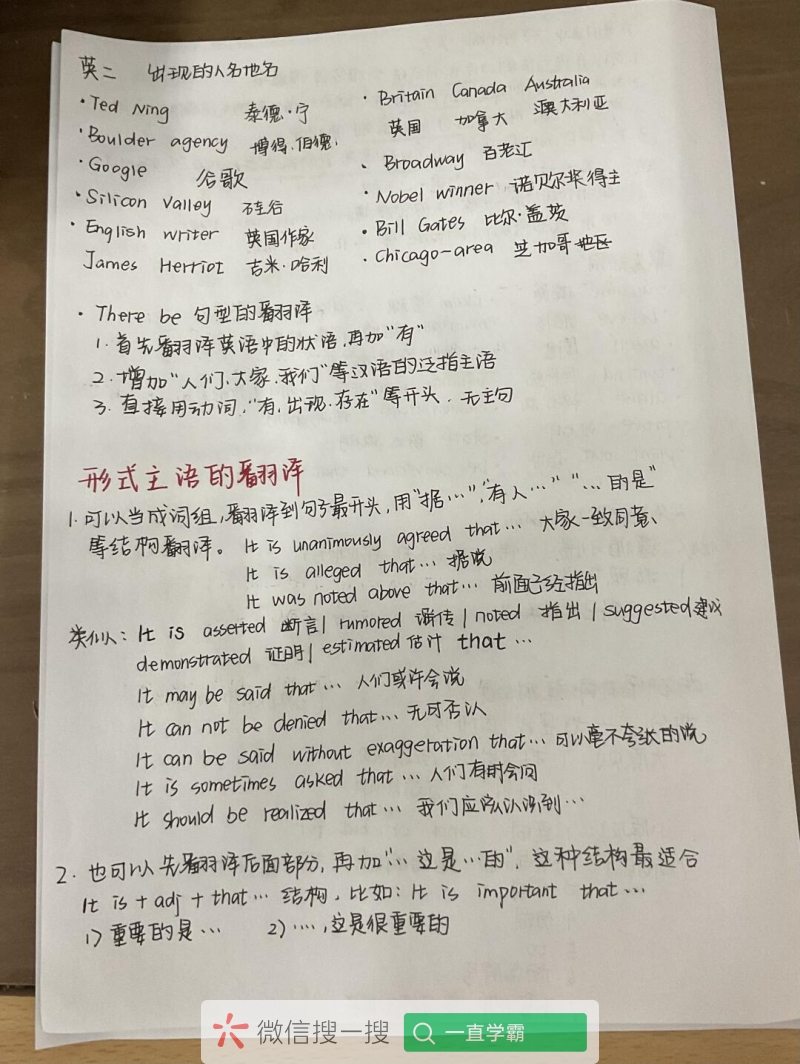 英二 出现的人名地名
·Ted Ning 泰德·宁
·Boulder agency 博得.伯德.
·Google 谷歌
·Silicon Valley 硅谷
·English writer 英国作家
James Herriot 吉米·哈利
·Britain Canada Australia
英国 加拿大 澳大利亚
·Broadway 百老汇
·Nobel winner 诺贝尔奖得主
·Bill Gates 比尔·盖茨
·Chicago-area 芝加哥地区
·There be 句型的翻译
1.首先翻译英语中的状语,再加"有"
2.增加"人们、大家、我们"等汉语的泛指主语
3.直接用动词,"有,出现,存在"等开头.无主句
形式主语的翻译
1.可以当成词组,翻译到句子最开头,用"据…","有人…""…的是"
等结构翻译。 It is unanimously agreed that… 大家一致同意、
It is alleged that… 据说
It was noted above that… 前面已经指出
类似: It is asserted 断言/ rumored 谣传/ noted 指出/ suggested建议
demonstrated 证明/ estimated 估计 that…
It may be said that… 人们或许会说
It can not be denied that… 无可否认
It can be said without exaggeration that… 可以毫不夸张的说
It is sometimes asked that… 人们有时会问
It should be realized that… 我们应该认识到…
2. 也可以先翻译后面部分,再加"…这是…的",这种结构最适合
It is + adj + that… 结构,比如: It is important that…
1) 重要的是… 2)…,这是很重要的
微信搜一搜 一直学霸